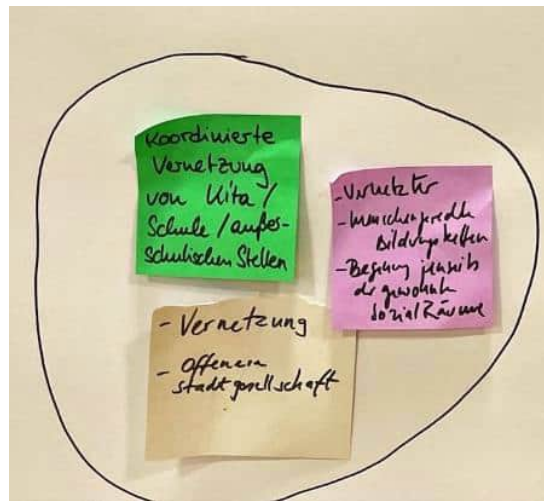 Koordinierte
Vernetzung
von Kita /
Schule / außer-
schulischen Stellen
- Vernetzter
Bildungsketten
- Begegnung jenseits
der gewohnten
Sozialräume
- Vernetzung
- Offenen
Stadtgesellschaft